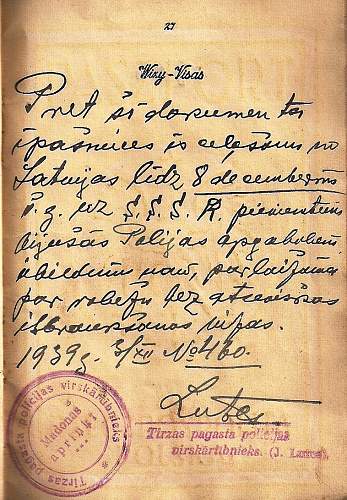 27
Wizy-Visas
Pret šī dokumenta
īpašnieces izceļošanu no
Latvijas līdz 8 decembrim
š. g. uz S. S. S. R. pievienotiem
bijušās Polijas apgabaliem
iebildumu nav, pārlaižama
par robežu bez atsevišķas
izbraukšanas vīzas.
1939 g. 3/XII No 460.
Tirzas pagasta policijas
virskārtībnieks. (J. Luters).
Tirzas pagasta policijas virskārtībnieks
Madonas
apriņķī